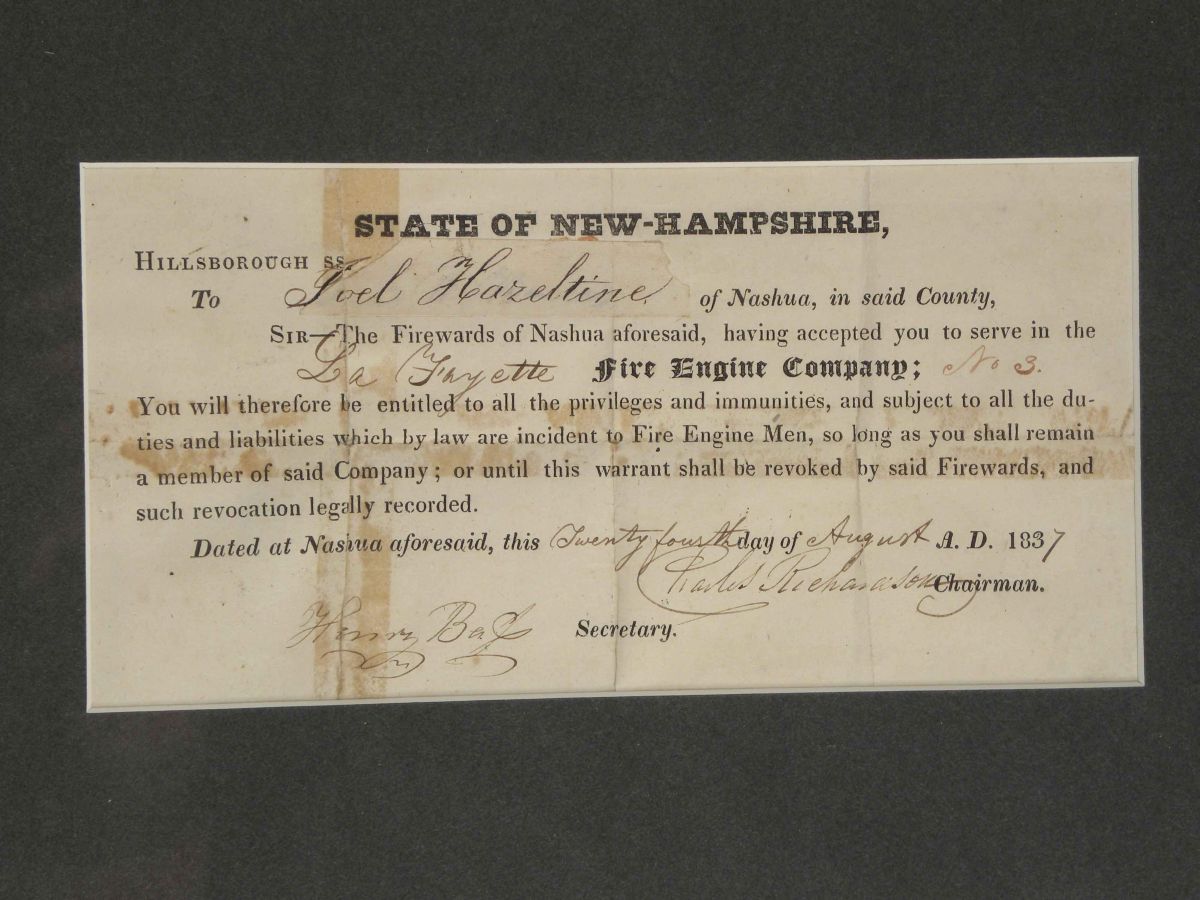 STATE OF NEW-HAMPSHIRE,
HILLSBOROUGH SS.
To Joel Hazeltine of Nashua, in said County,
SIR—The Firewards of Nashua aforesaid, having accepted you to serve in the
La Fayette Fire Engine Company; No 3.
You will therefore be entitled to all the privileges and immunities, and subject to all the du-
ties and liabilities which by law are incident to Fire Engine Men, so long as you shall remain
a member of said Company; or until this warrant shall be revoked by said Firewards, and
such revocation legally recorded.
Dated at Nashua aforesaid, this Twenty fourth day of August A. D. 1837
Charles Richardson Chairman.
Henry Secretary.